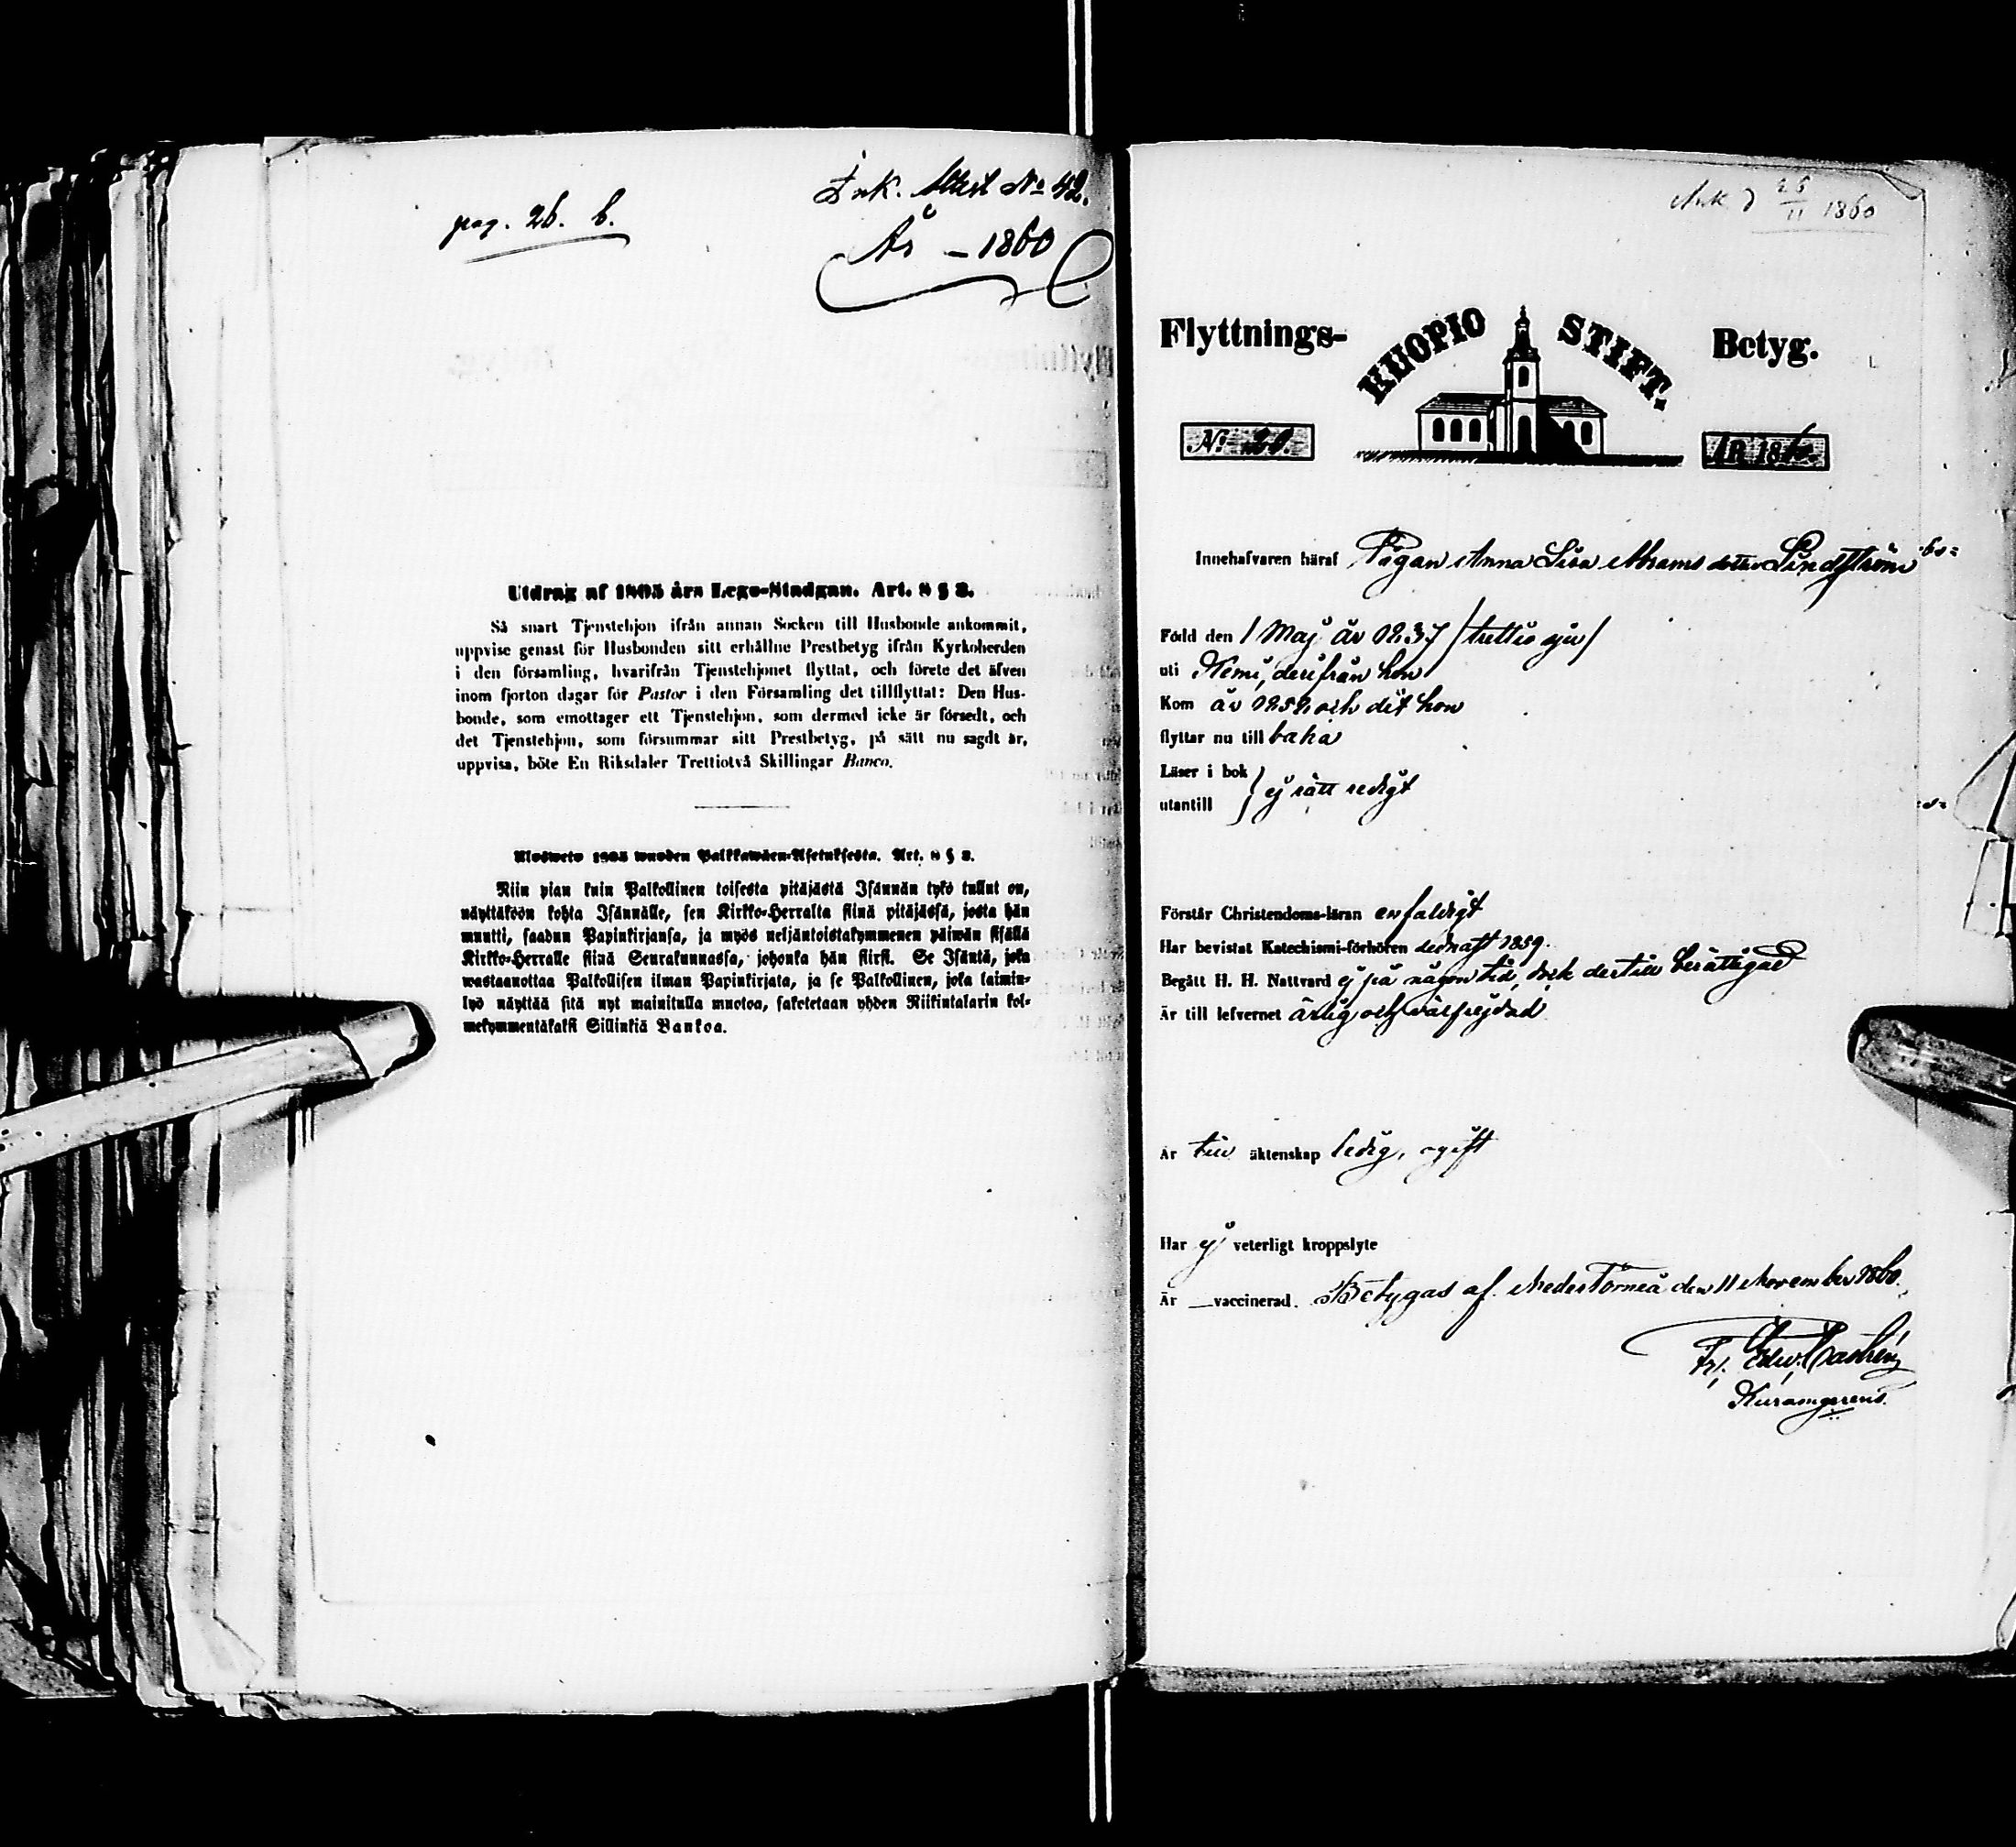 pag. 26. b.
Ink. Attest No 42.
År - 1860
Utdrag af 1805 års Lego-Stadgan. Art. 8 § 3.
Så snart Tjenstehjon ifrån annan Socken till Husbonde ankommit,
uppvise genast för Husbonden sitt erhållne Prestbetyg ifrån Kyrkoherden
i den församling, hvarifrån Tjenstehjonet flyttat, och förete det äfven
inom fjorton dagar för Pastor i den Församling det tillflyttat: Den Hus-
bonde, som emottager ett Tjenstehjon, som dermed icke är försedt, och
det Tjenstehjon, som försummar sitt Prestbetyg, på sätt nu sagdt är,
uppvisa, böte En Riksdaler Trettiotvå Skillingar Banco.
Ulosweto 1805 wuoden Palkkawäen-Asetuksesta. Art. 8 § 3.
Niin pian kuin Palkollinen toisesta pitäjästä Isännän tykö tullut on,
näyttäköön kohta Isännälle, sen Kirkko-Herralta siinä pitäjässä, josta hän
muutti, saadun Papinkirjansa, ja myös neljäntoistakymmenen päiwän sisällä
Kirkko-Herralle siinä Seurakunnassa, johonka hän siirsi. Se Isäntä, joka
wastaanottaa Palkollisen ilman Papinkirjata, ja se Palkollinen, joka laimin-
lyö näyttää sitä nyt mainitulla muotoa, saketetaan yhden Riikintalarin kol-
mekymmentäkaksi Sillinkiä Bankoa.
Ank. d 25/11 1860
Flyttnings- KUOPIO STIFT. Betyg.
No 20. ÅR 1860.
Innehafvaren häraf Pigan Anna Lisa Abramsdotter Lindström
Född den 1 Maj år 1837 /trettio sju/
uti Kemi, derifrån hon
Kom år 1852 och dit hon
flyttar nu tillbaka
Läser i bok
utantill } ej rätt redigt
Förstår Christendoms-läran enfaldigt
Har bevistat Katechismi-förhören sednast 1859.
Begått H. H. Nattvard ej på någon tid, dock dertill berättigad
Är till lefvernet ärlig och välfrejdad
Är till äktenskap ledig, ogift
Har ej veterligt kroppslyte
Är — vaccinerad. Betygas af Neder Torneå den 11 November 1860.
Fr. Edw. Castrén